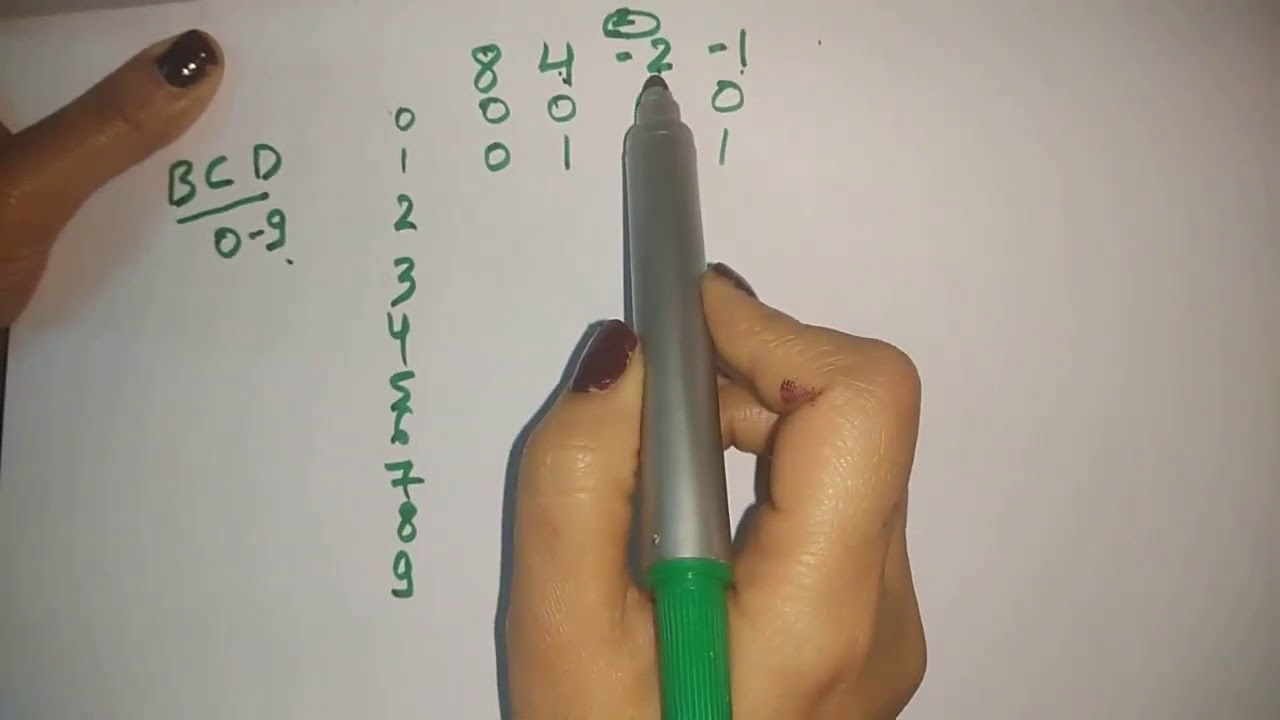 8 4 -2 -1
0 0 0 0
1 0 1 1
BCD
2
0-9
3
4
5
6
7
8
9